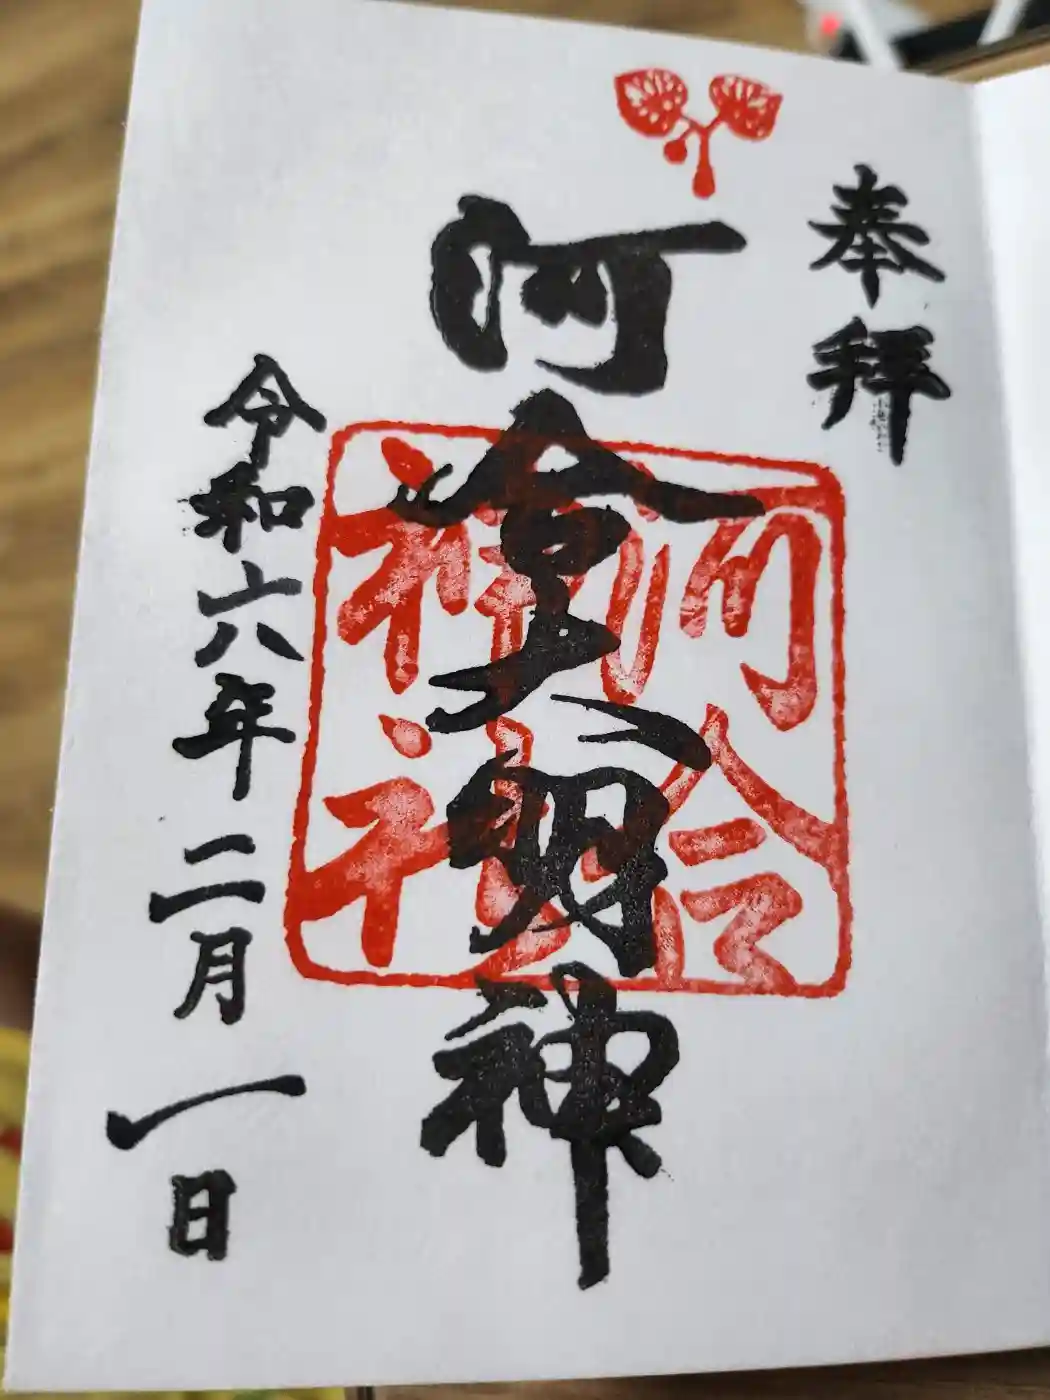 奉拝
河合大明神
河合
神社
令和六年二月一日